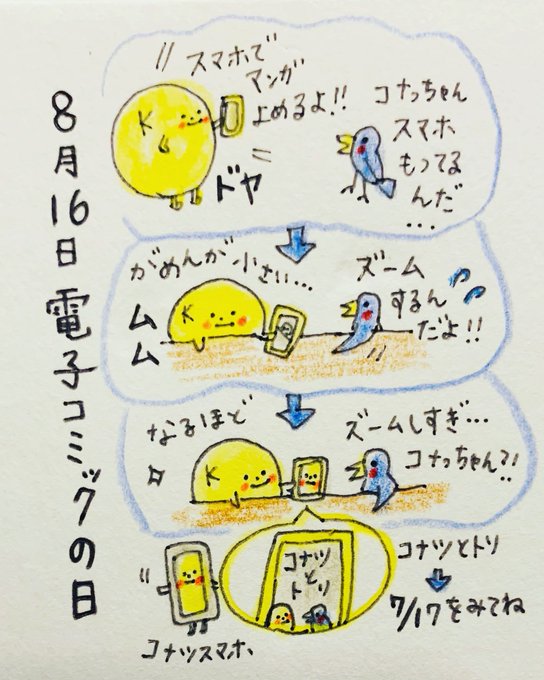 8月16日 電子コミックの日
スマホで
マンガ
よめるよ!!
ドヤ
K
コナっちゃん
スマホ
もってる
んだ
...
がめんが小さい...
ムム
K
ズーム
するん
だよ!!
なるほど
K
ズームしすぎ...
コナっちゃん?!
コナツ
と
トリ
コナツスマホ
コナツとトリ
7/17をみてね